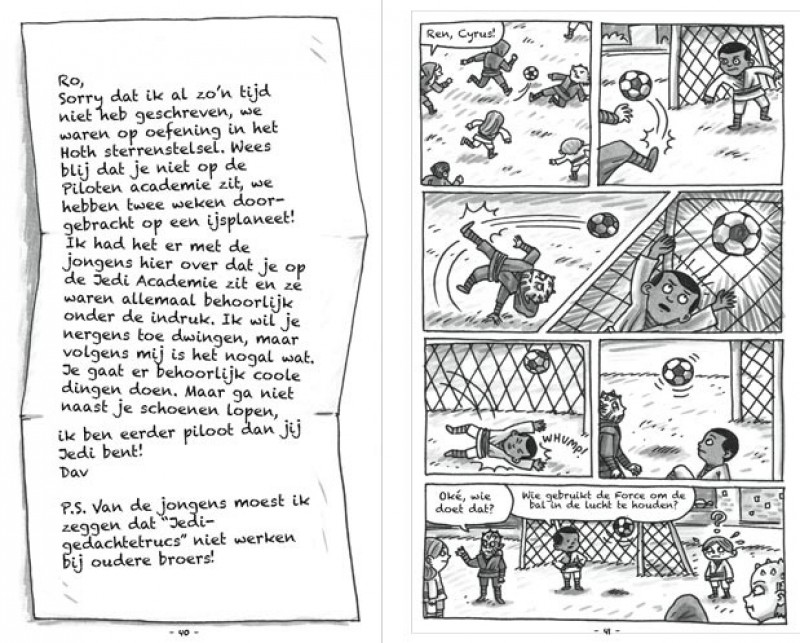 Ro,
Sorry dat ik al zo'n tijd
niet heb geschreven, we
waren op oefening in het
Hoth sterrenstelsel. Wees
blij dat je niet op de
Piloten academie zit, we
hebben twee weken door-
gebracht op een ijsplaneet!
Ik had het er met de
jongens hier over dat je op
de Jedi Academie zit en ze
waren allemaal behoorlijk
onder de indruk. Ik wil je
nergens toe dwingen, maar
volgens mij is het nogal wat.
Je gaat er behoorlijk coole
dingen doen. Maar ga niet
naast je schoenen lopen,
ik ben eerder piloot dan jij
Jedi bent!
Dav
P.S. Van de jongens moest ik
zeggen dat "Jedi-
gedachtetrucs" niet werken
bij oudere broers!
- 40 -
Ren, Cyrus!
WHUMP!
Oké, wie
doet dat?
Wie gebruikt de Force om de
bal in de lucht te houden?
?
- 41 -